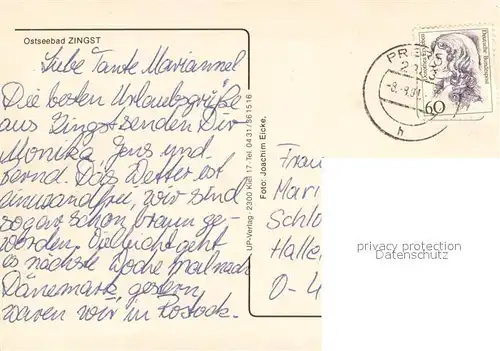 Ostseebad ZINGST
Liebe Tante Marianne!
Die besten Urlaubsgrüße
aus Zingst senden Dir
Monika, Jens und
Bernd. Das Wetter ist
einwandfrei, wir sind
sogar schon braun ge-
worden. Vielleicht geht
es nächste Woche mal nach
Dänemark, gestern
waren wir in Rostock.
UP-Verlag · 2300 Kiel 17 · Tel. 04 31/36 15 16
Foto: Joachim Eicke,
60
Deutsche Bundespost
h
Frau
Mari
Schlo
Halle
O-4
privacy protection
Datenschutz